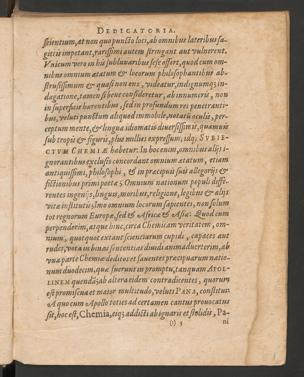 DEDICATORIA.
scientium, at non quo puncto loci, ab omnibus lateribus sa-
gittis impetant, rarissimi autem stringant aut vulnerent.
Vnicum vero in his sublunaribus sese offert, quod cum om-
nibus omnium ætatum & locorum philosophantibus ab-
strusissimum & quasi non ens, videatur, indignumq; in-
dagatione, tamen si bene consideretur, ab innumeris, non
in superficie hærentibus, sed in profundum rei penetranti-
bus, veluti punctum aliquod immobile, notatū oculis, per-
ceptum mente, & lingua idiomatis diversissimi, quamvis
sub tropis & figuris, plus millies expressum, idq; SVBIE-
CTVM CHEMIÆ habetur. In hoc enim, omnibus alijs i-
gnorantibus exclusis concordant omnium ætatum, etiam
antiquissimi, philosophi, & in præcipuis suis allegorijs &
fictionibus primi poëtæ; Omnium nationum populi diffe-
rentes ingenijs, lingua, moribus, religione, legibus & alijs
vitæ institutis; Imo omnium locorum sapientes, non solum
tot regnorum Europæ, sed & Africæ & Asiæ: Quod cum
perpenderim, atque hinc, circa Chemicam veritatem, om-
nium, quotquot extant scientiarum cupidi, capaces aut
rudes, vota in binas sententias dividi animadverterim, ab
vna parte Chemiæ deditos et faventes præcipuarum natio-
num duodecim, quæ fuerunt in promptu, tanquam APOL-
LINEM quendā; ab altera eidem contradicentes, quorum
est promiscua et maior multitudo, veluti PANA, constitui:
A quo cum Apollo toties ad certamen cantus provocatus
sit, hoc est, Chemia, eiq; addicti ab ignaris et stolidis, Pa-
(:) 3 ni